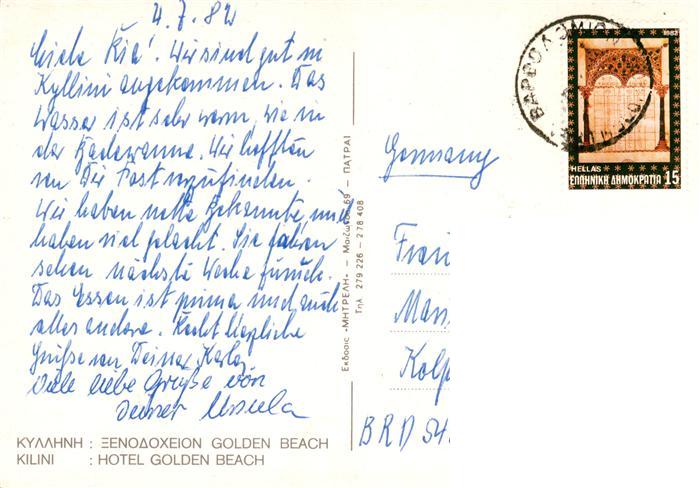 4.7.82
Liebe Ria! Wir sind gut in
Kyllini angekommen. Das
Wasser ist sehr warm, wie in
der Badewanne. Wir hofften
von Dir Post vorzufinden.
Wir haben nette Bekannte, und
haben viel gelacht. Sie fahren
schon nächste Woche zurück.
Das Essen ist prima und auch
alles andere. Recht herzliche
Grüße von Deiner
Viele liebe Grüße von
Deiner Ursula
ΚΥΛΛΗΝΗ : ΞΕΝΟΔΟΧΕΙΟΝ GOLDEN BEACH
KILINI : HOTEL GOLDEN BEACH
Εκδοσις «ΜΗΤΡΕΛΗ» — Μαιζώνος 69 — ΠΑΤΡΑΙ
Τηλ. 279 226 — 278 408
1982
HELLAS
ΕΛΛΗΝΙΚΗ ΔΗΜΟΚΡΑΤΙΑ 15
Germany
BRD